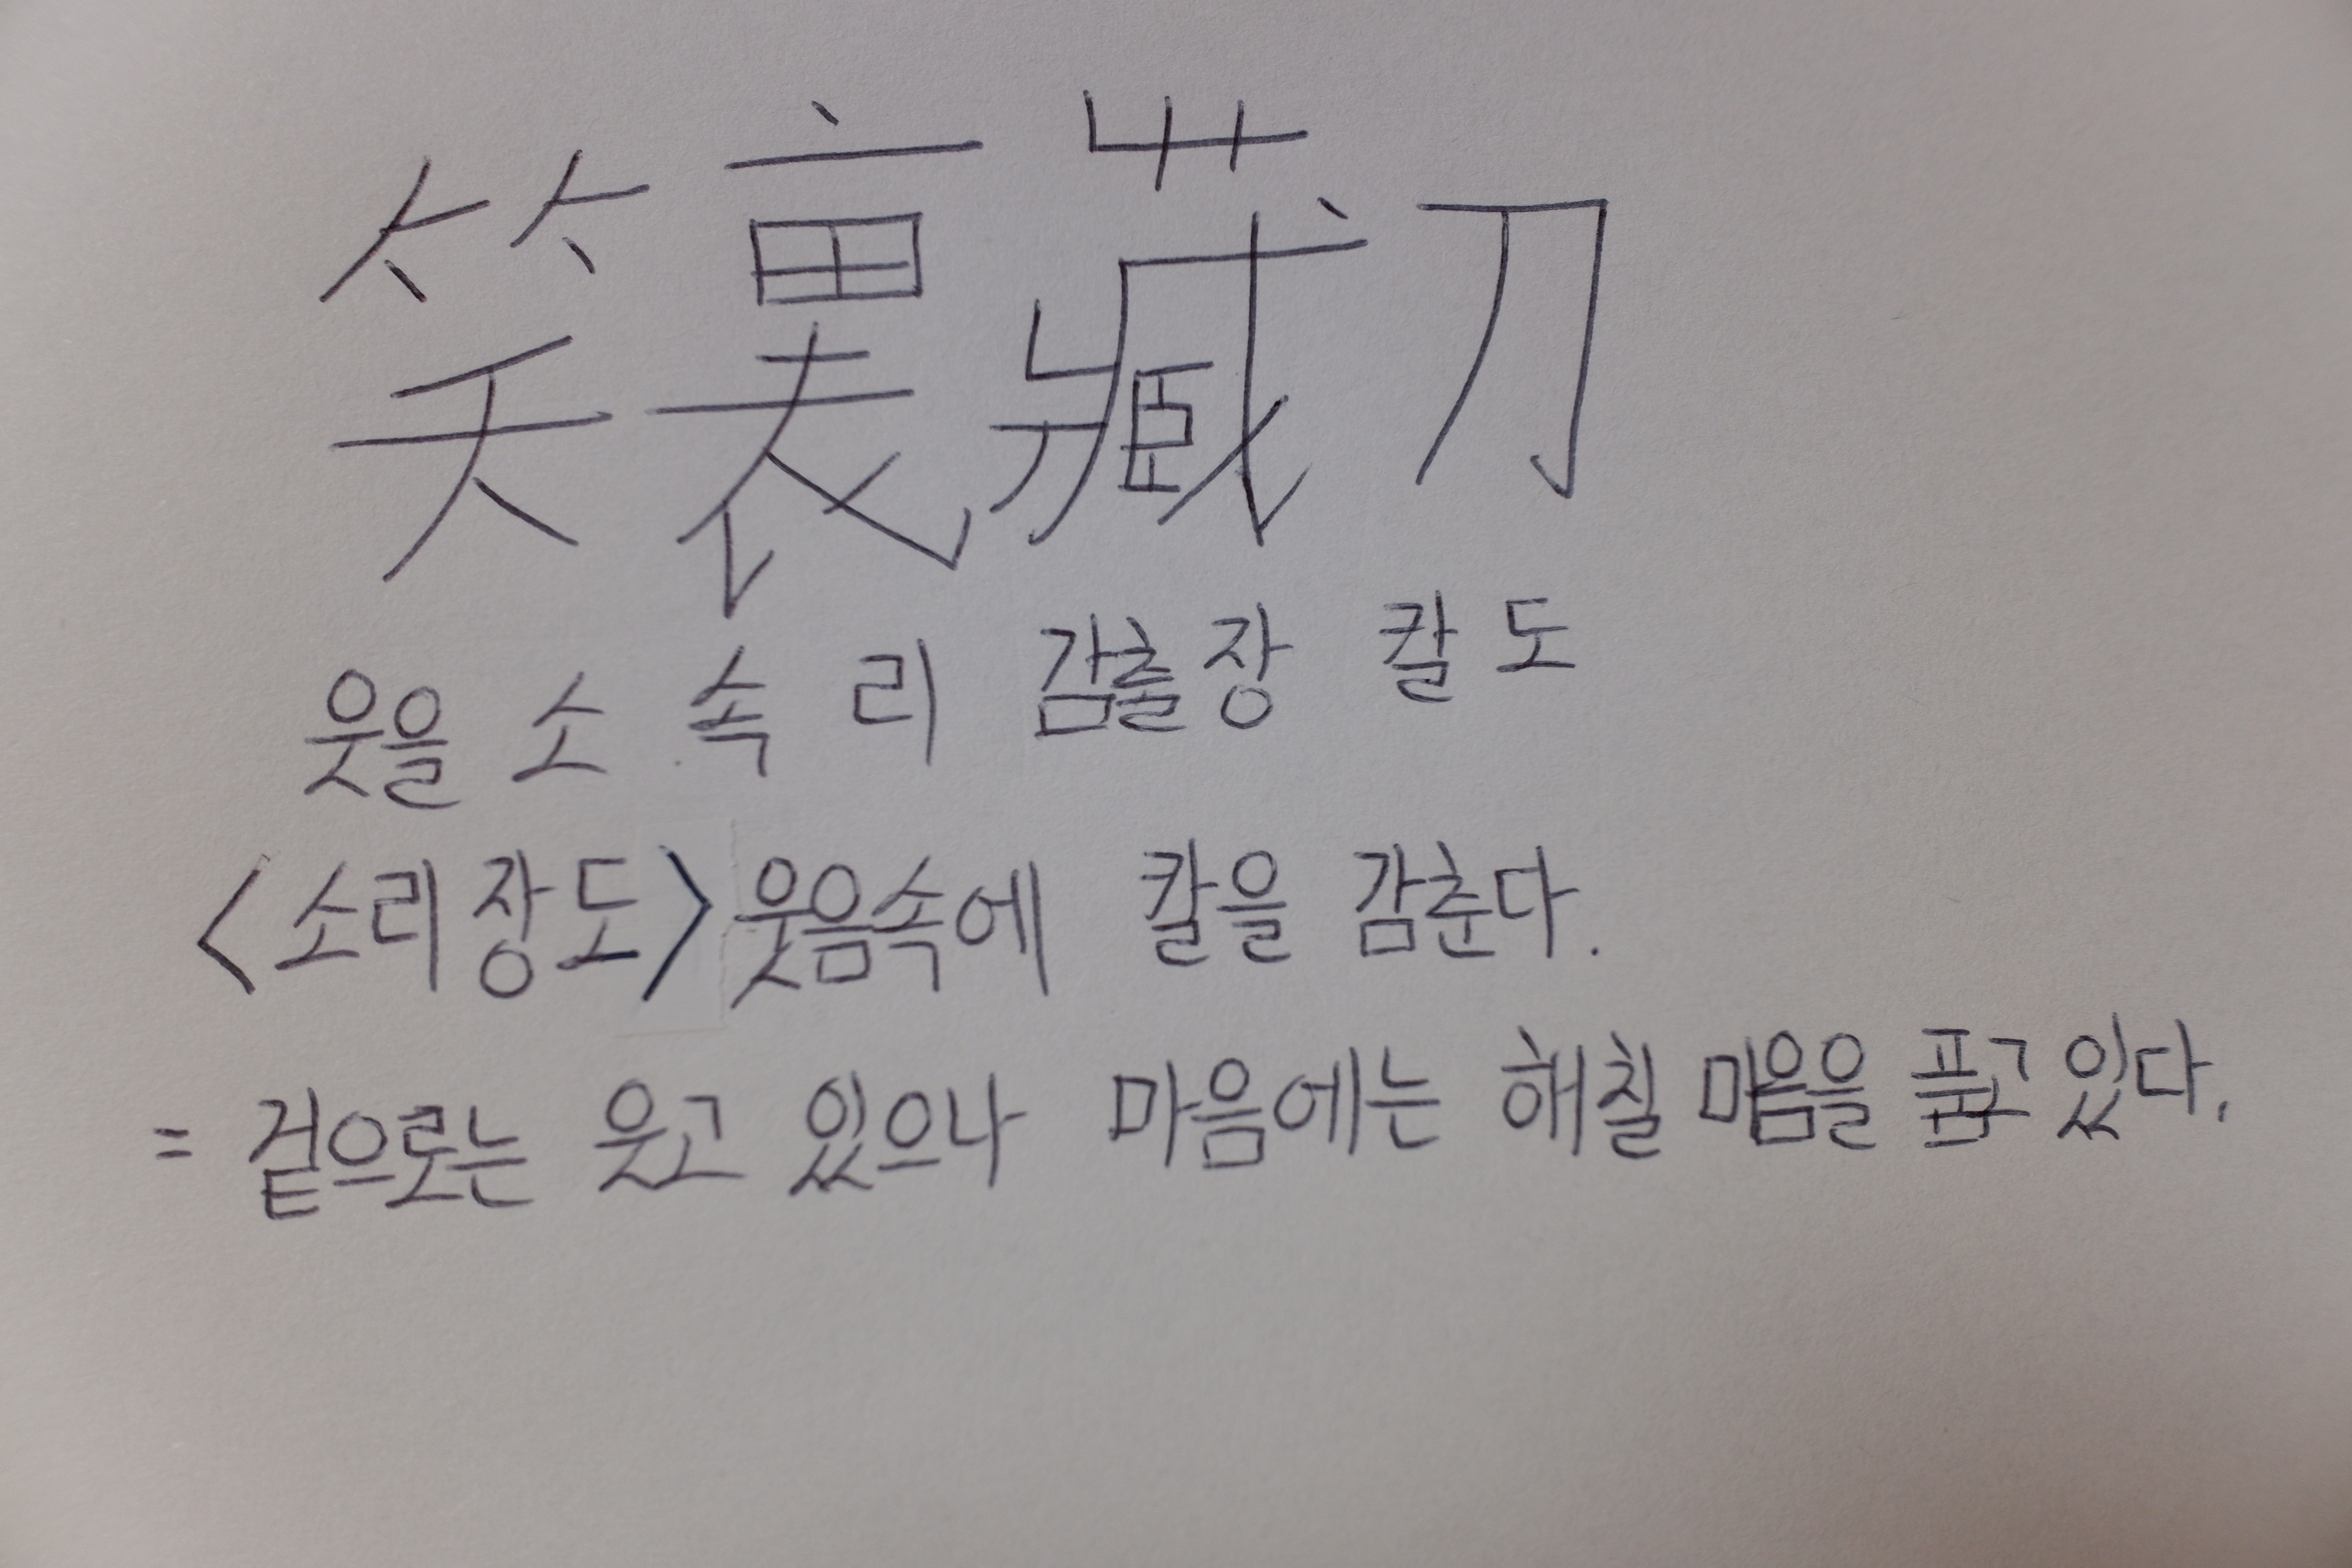 笑裏藏刀
웃을 소 속 리 감출 장 칼 도
<소리장도> 웃음속에 칼을 감춘다.
= 겉으로는 웃고 있으나 마음에는 해칠 마음을 품고 있다.